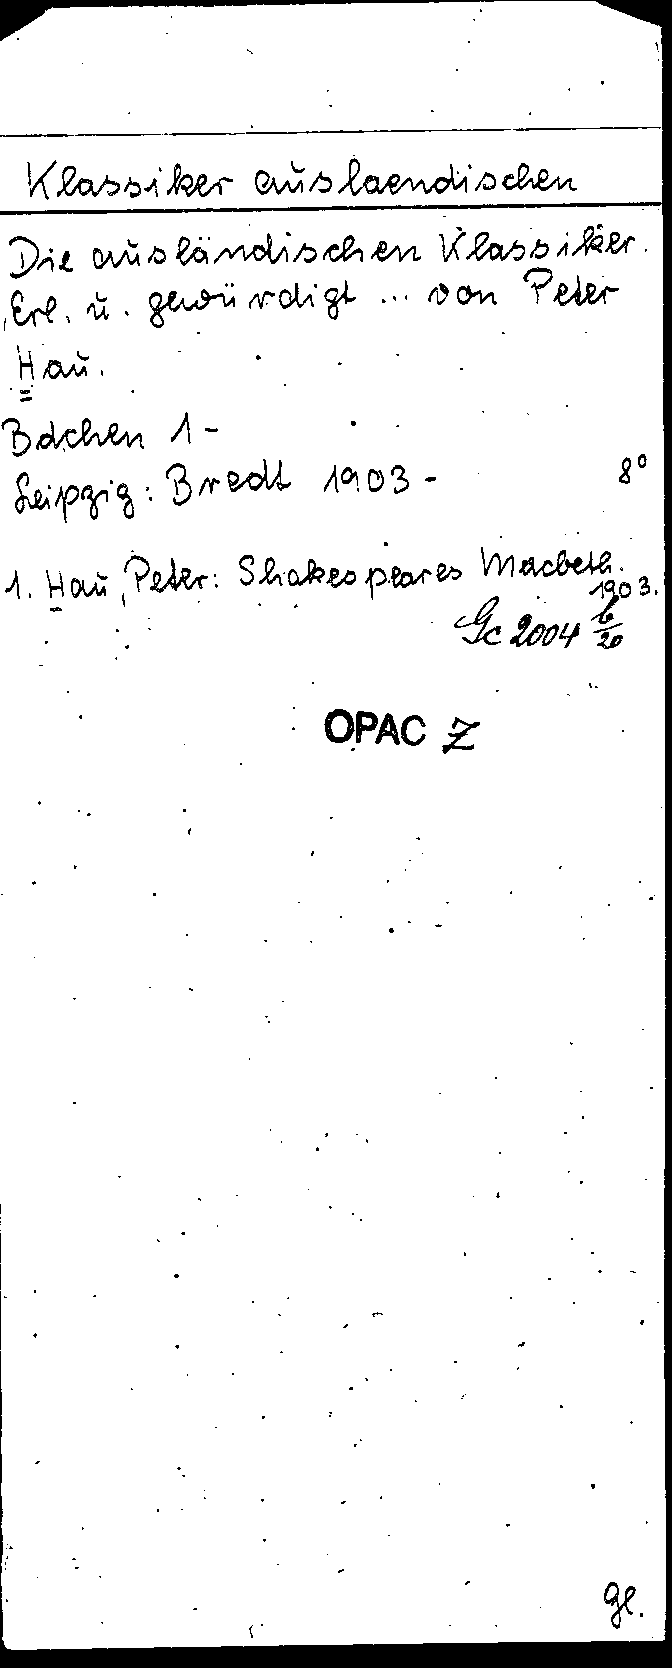 Klassiker auslaendischen
Die ausländischen Klassiker.
Erl. u. gewürdigt ... von Peter
Hau.
Bdchen 1 -
Leipzig: Bredt 1903 - 8°
1. Hau, Peter: Shakespeares Macbeth.
1903.
Gc 2004 b/20
OPAC Z
gl.